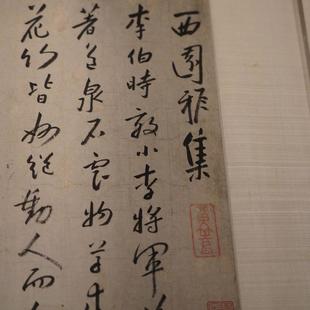 西園雅集
李伯時效小李將軍
著色泉石雲物草木
花竹皆妙絕動人而人